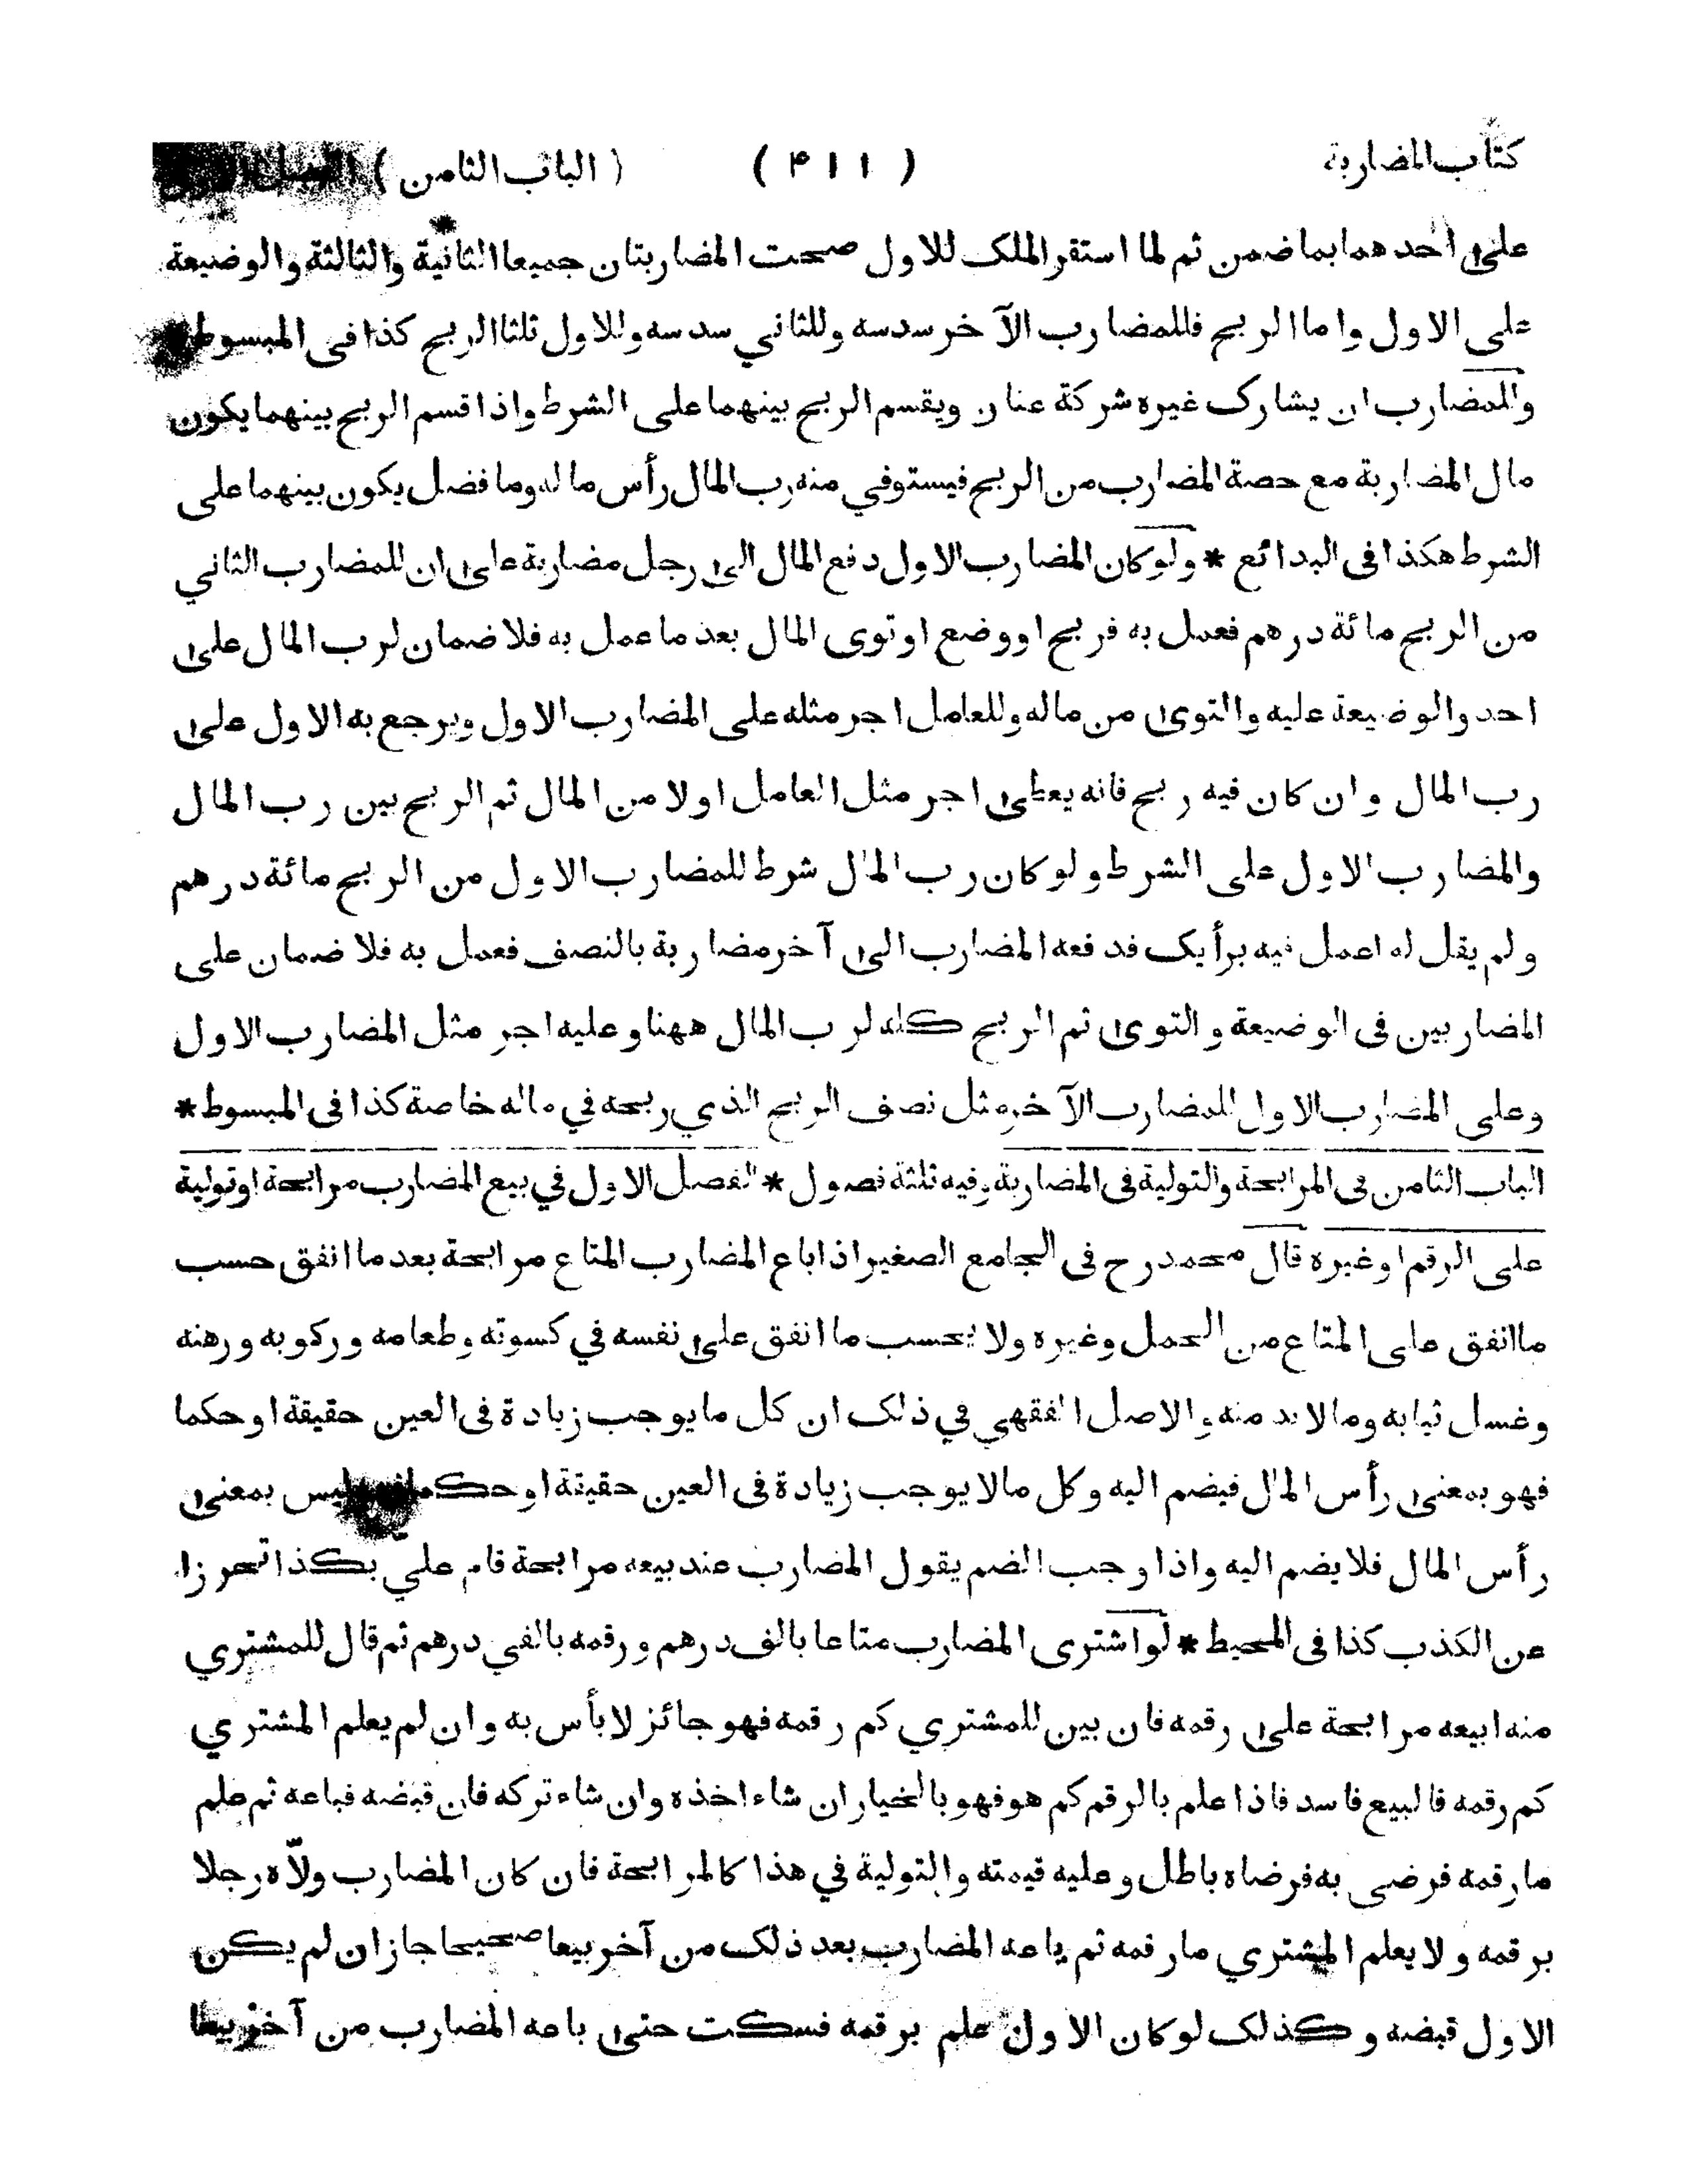 كتاب المضاربة ( ٤١١ ) ( الباب الثامن )
على احدهما بما ضمن ثم لما استقر الملك للاول صحت المضاربتان جميعا الثانية والثالثة والوضيعة
على الاول واما الربح فللمضارب الآخر سدسه وللثاني سدسه وللاول ثلثا الربح كذا فى المبسوط
وللمضارب ان يشارك غيره شركة عنان ويقسم الربح بينهما على الشرط واذا قسم الربح بينهما يكون
مال المضاربة مع حصة المضارب من الربح فيستوفي منه رب المال رأس ماله وما فضل يكون بينهما على
الشرط هكذا فى البدائع * ولو كان المضارب الاول دفع المال الى رجل مضاربة على ان للمضارب الثاني
من الربح مائة درهم فعمل به فربح او وضع او توى المال بعد ما عمل به فلا ضمان لرب المال على
احد والوضيعة عليه والتوى من ماله وللعامل اجر مثله على المضارب الاول ويرجع به الاول على
رب المال وان كان فيه ربح فانه يعطى اجر مثل العامل اولا من المال ثم الربح بين رب المال
والمضارب الاول على الشرط ولو كان رب المال شرط للمضارب الاول من الربح مائة درهم
ولم يقل له اعمل فيه برأيك فدفعه المضارب الى آخر مضاربة بالنصف فعمل به فلا ضمان على
المضاربين فى الوضيعة والتوى ثم الربح كله لرب المال ههنا وعليه اجر مثل المضارب الاول
وعلى المضارب الاول للمضارب الآخر مثل نصف الربح الذي ربحه في ماله خاصة كذا فى المبسوط *
الباب الثامن فى المرابحة والتولية فى المضاربة وفيه ثلثة فصول * الفصل الاول في بيع المضارب مرابحة او تولية
على الرقم او غيره قال محمد رح فى الجامع الصغير اذا باع المضارب المتاع مرابحة بعد ما انفق حسب
ما انفق على المتاع من الحمل وغيره ولا يحسب ما انفق على نفسه في كسوته وطعامه وركوبه ورهنه
وغسل ثيابه وما لا بد منه والاصل الفقهي في ذلك ان كل ما يوجب زيادة فى العين حقيقة او حكما
فهو بمعنى رأس المال فيضم اليه وكل ما لا يوجب زيادة فى العين حقيقة او حكما ليس بمعنى
رأس المال فلا يضم اليه واذا وجب الضم يقول المضارب عند بيعه مرابحة قام عليّ بكذا تحرزا
عن الكذب كذا فى المحيط * لو اشترى المضارب متاعا بالف درهم ورقمه بالفي درهم ثم قال للمشتري
منه ابيعه مرابحة على رقمه فان بين للمشتري كم رقمه فهو جائز لا بأس به وان لم يعلم المشتري
كم رقمه فالبيع فاسد فاذا علم بالرقم كم هو فهو بالخيار ان شاء اخذه وان شاء تركه فان قبضه فباعه ثم علم
ما رقمه فرضي به فرضاه باطل وعليه قيمته والتولية في هذا كالمرابحة فان كان المضارب ولّاه رجلا
برقمه ولا يعلم المشتري ما رقمه ثم باعه المضارب بعد ذلك من آخر بيعا صحيحا جاز ان لم يكن
الاول قبضه وكذلك لو كان الاول علم برقمه فسكت حتى باعه المضارب من آخر بيعا